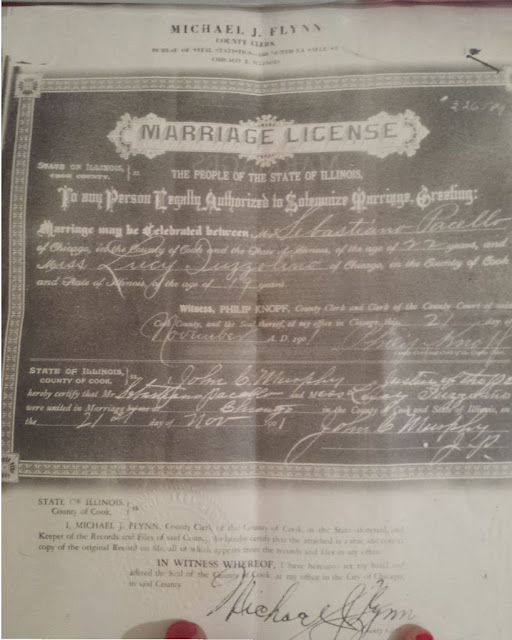 MICHAEL J. FLYNN
COUNTY CLERK
BUREAU OF VITAL STATISTICS
CHICAGO 2, ILLINOIS
MARRIAGE LICENSE
STATE OF ILLINOIS, COOK COUNTY. } ss.
THE PEOPLE OF THE STATE OF ILLINOIS,
To any Person Legally Authorized to Solemnize Marriage, Greeting:
Marriage may be Celebrated between Mr Sebastiano Pacello
of Chicago, in the County of Cook and the State of Illinois, of the age of 22 years, and
Miss Lucy Tuzzolino of Chicago, in the County of Cook
and State of Illinois, of the age of 19 years.
Witness, PHILIP KNOPF, County Clerk and Clerk of the County Court of said
Cook County, and the Seal thereof, at my office in Chicago, this 21 day of
November A. D. 1901 Philip Knopf
County Clerk and Clerk of the County Court.
STATE OF ILLINOIS, COUNTY OF COOK, } ss. I, John C Murphy Justice of the
hereby certify that Mr Sebastiano Pacello and Miss Lucy Tuzzolino
were united in Marriage by me at Chicago in the County of Cook and State of Illinois, on
the 21st day of Nov 1901 John C Murphy
J.P.
STATE OF ILLINOIS, County of Cook, } ss.
I, MICHAEL J. FLYNN, County Clerk of the County of Cook, in the State aforesaid, and
Keeper of the Records and Files of said County, do hereby certify that the attached is a true and correct
copy of the original Record on file, all of which appears from the records and files in my office.
IN WITNESS WHEREOF, I have hereunto set my hand and
affixed the Seal of the County of Cook, at my office in the City of Chicago,
in said County.
Michael J Flynn